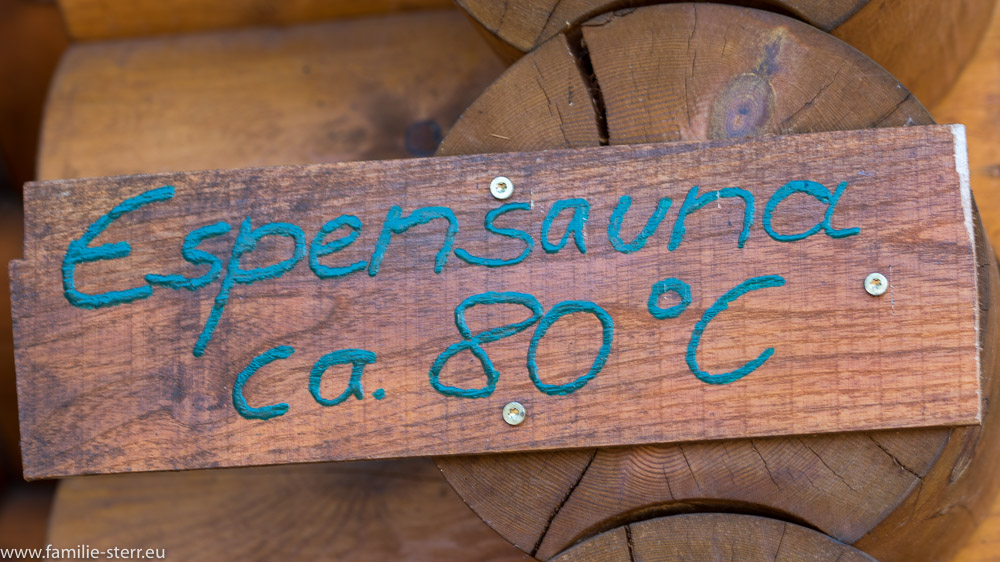 Espensauna
ca. 80°C
www.familie-sterr.eu